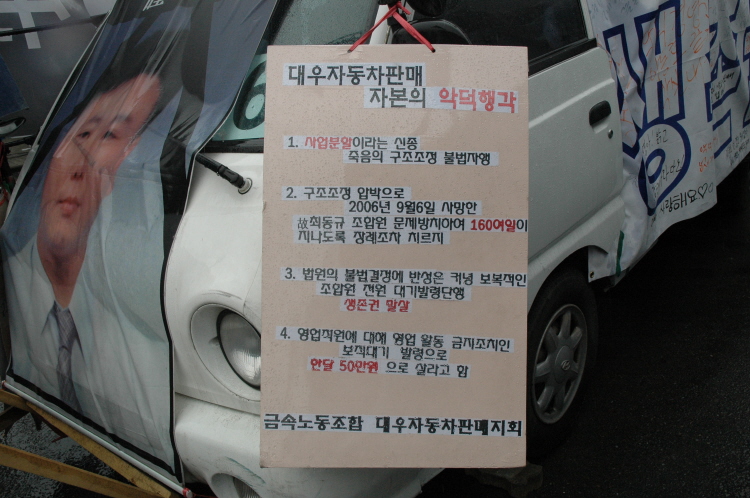 대우자동차판매
자본의 악덕행각
1. 사업분할이라는 신종
죽음의 구조조정 불법자행
2. 구조조정 압박으로
2006년 9월6일 사망한
故최동규 조합원 문제방치하여 160여일이
지나도록 장례조차 치르지
3. 법원의 불법결정에 반성은 커녕 보복적인
조합원 전원 대기발령단행
생존권 말살
4. 영업직원에 대해 영업 활동 금지조치인
보직대기 발령으로
한달 50만원 으로 살라고 함
금속노동조합 대우자동차판매지회